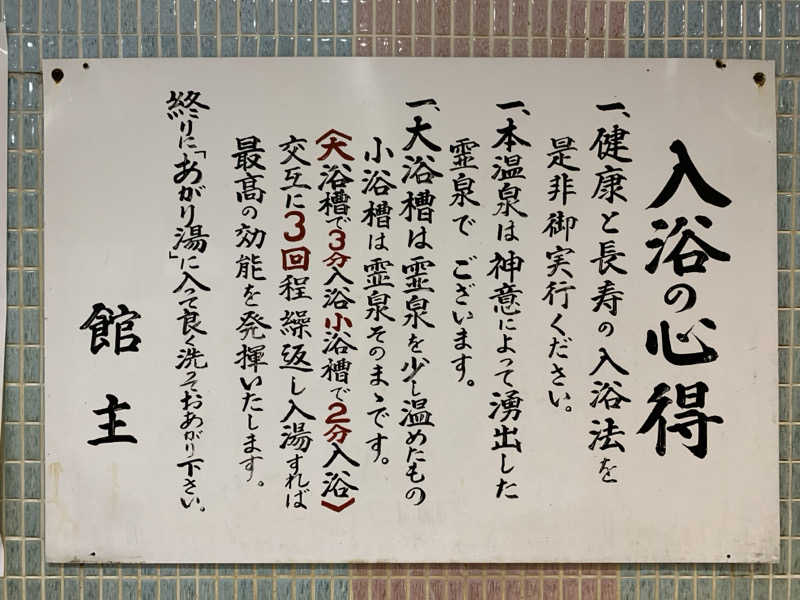 入浴の心得
一、健康と長寿の入浴法を
是非御実行ください。
一、本温泉は神意によって湧出した
霊泉でございます。
一、大浴槽は霊泉を少し温めたもの
小浴槽は霊泉そのまゝです。
〈大浴槽で3分入浴小浴槽で2分入浴〉
交互に3回程繰返し入湯すれば
最高の効能を発揮いたします。
終りに「あがり湯」に入って良く洗っておあがり下さい。
館主